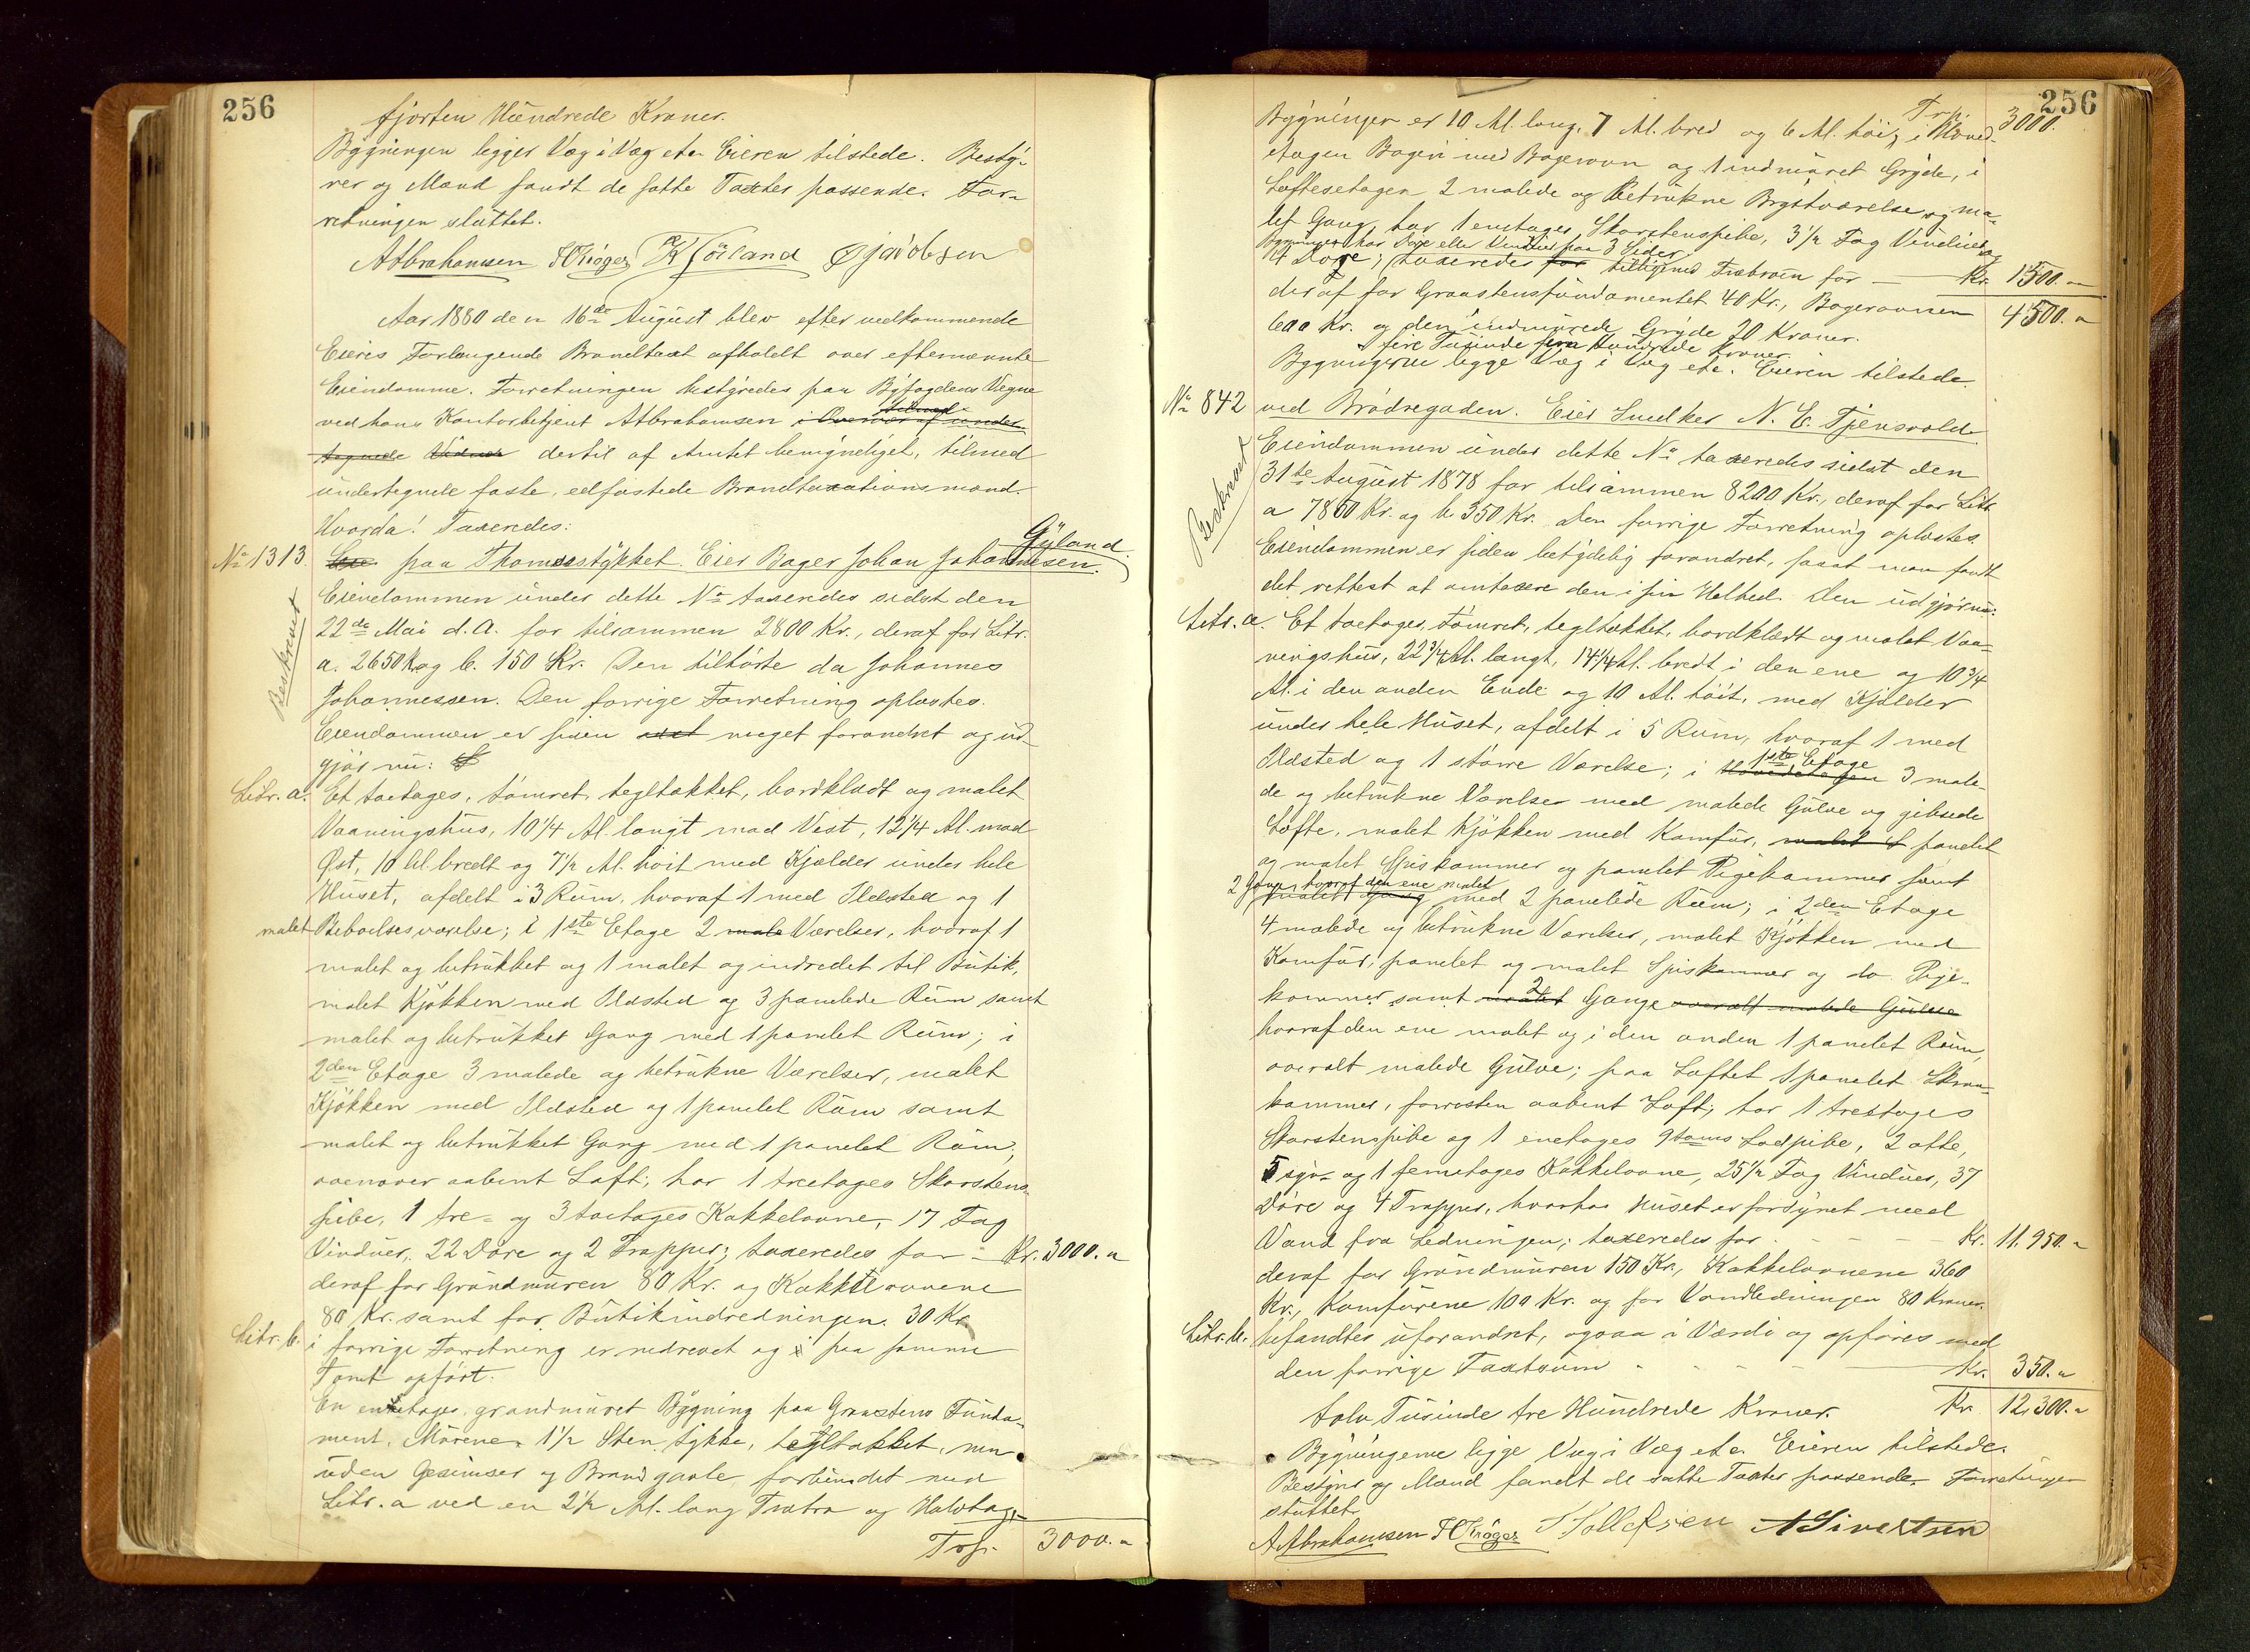 256
fjorten Hundrede Kroner.
Bygningen ligger Væg i Væg etc. Eieren tilstede. Besty-
rer og Mænd fandt de satte Taxter passende. For-
retningen sluttet.
AAbrahamsen TCKröger K Görland Ø Jacobsen
Aar 1880 den 16de August blev efter vedkommende
Eieres Forlangende Brandtaxt afholdt over efternævnte
Eiendomme. Forretningen bestyredes paa Byfogdens Vegne
ved hans Kontorbetjent AAbrahamsen i Overvær af under
tegnede Vidner dertil af Amtet bemyndiget, tilmed
undertegnede faste, edfæstede Brandtaxationsmænd.
Hvorda! Taxeredes:
No 1313. paa Thomesstykket. Eier Bager Johan Johannesen Gyland.
Beskrevet
Eiendommen under dette No taxeredes sidst den
22de Mai d.A. for tilsammen 2800 Kr., deraf for Litr.
a. 2650 Kr. og b. 150 Kr. Den tilhørte da Johannes
Johannessen. Den forrige Forretning oplæstes.
Eiendommen er siden meget forandret og ud-
gjør nu:
Litr. a. Et toetages, tömret, tegltækket, bordklædt og malet
Vaaningshus, 10 1/4 Al. langt mod Vest, 12 1/4 Al. mod
Øst, 10 Al. bredt og 7 1/2 Al. høit med Kjælder under hele
Huset, afdelt i 3 Rum, hvoraf 1 med Ildsted og 1
malet Beboelsesværelse; i 1ste Etage 2 male Værelser, hvoraf 1
malet og betrukket og 1 malet og indredet til Butik,
malet Kjökken med Ildsted og 3 panelede Rum samt
malet og betrukket Gang med 1 panelet Rum; i
2den Etage 3 malede og betrukne Værelser, malet
Kjökken med Ildsted og 1 panelet Rum samt
malet og betrukket Gang med 1 panelet Rum,
ovenover aabent Loft; har 1 treetages Skorstens-
pibe, 1 tre- og 3 toetages Kakkelovne, 17 Fag
Vinduer, 22 Döre og 2 Trapper; taxeredes for - Kr. 3000.
deraf for Grundmuren 80 Kr. og Kakkelovnene
80 Kr. samt for Butikindredningen 30 Kr.
Litr. b. i forrige Forretning er nedrevet og paa samme
Tomt opfört.
En enetages, grundmuret Bygning paa Graastens Funda-
ment, Murene 1 1/2 Sten tykke, tegltækket, men
uden Gesimser og Brandgavle, forbundet med
Litr. a ved en 2 1/2 Al. lang Trætra og Halvtag.
Trsp. 3000.
256
Trp. 3000.
Bygningen er 10 Al. lang, 7 Al. bred og 6 Al. høi; i Hoved-
etagen Bageri med Bagerovn og 1 indmuret Gryde, i
Loftsetagen 2 malede og betrukne Brystværelse og ma-
let Gang, har 1 enetages Skorstenspibe, 3 1/2 Fag Vinduer og
Bygningen har Döre eller Vinduer paa 3 Sider
4 Döre; taxeredes for tilligemed Træbroen for - Kr. 1500.
deraf for Graastensfundamentet 40 Kr., Bagerovnen 4500.
600 Kr. og den indmurede Gryde 20 Kroner.
Fire Tusinde fem Hundrede Kroner.
Bygningerne ligge Væg i Væg etc. Eieren tilstede.
No 842 ved Brødregaden. Eier Snedker N. E. Tjensvold.
Beskrevet
Eiendommen under dette No taxeredes sidst den
31te August 1878 for tilsammen 8200 Kr., deraf for Litr.
a 7850 Kr. og b 350 Kr. Den forrige Forretning oplæstes.
Eiendommen er siden betydelig forandret, saaat man fandt
det rettest at omtaxere den i sin Helhed. Den udgjør nu:
Litr. a. Et toetages, tömret, tegltækket, bordklædt og malet Vaa-
ningshus, 22 3/4 Al. langt, 14 1/4 Al. bredt i den ene og 10 3/4
Al. i den anden Ende og 10 Al. høit, med Kjælder
under hele Huset, afdelt i 5 Rum, hvoraf 1 med
Ildsted og 1 större Værelse; i Hovedetagen 1ste Etage 3 male-
de og betrukne Værelser med malede Gulve og gibsede
Lofte, malet Kjökken med Komfur, malet og panelet
og malet Spiskammer og panelet Pigekammer samt
2 Gange hvoraf den ene malet
malet Gang med 2 panelede Rum; i 2den Etage
4 malede og betrukne Værelser, malet Kjökken med
Komfur, panelet og malet Spiskammer og do. Pige-
kammer samt malet 2 Gange overalt malede Gulve
hvoraf den ene malet og i den anden 1 panelet Rum,
overalt malede Gulve; paa Loftet 1 panelet Skraa-
kammer, forresten aabent Loft; har 1 treetages
Skorstenspibe og 1 enetages 9toms Lodpibe, 2 otte,
5 syv- og 1 femetages Kakkelovne, 25 1/2 Fag Vinduer, 37
Döre og 4 Trapper, hvorhos Huset er forsynet med
Vand fra Ledningen; taxeredes for - - - Kr. 11.950.
deraf for Grundmuren 150 Kr., Kakkelovnene 360
Kr., Komfurene 100 Kr. og for Vandledningen 80 Kroner.
Litr. b. befandtes uforandret, ogsaa i Værdi og opføres med
den forrige Taxtsum - - - Kr. 350.
Kr. 12,300.
tolv Tusinde tre Hundrede Kroner.
Bygningerne ligge Væg i Væg etc. Eieren tilstede.
Bestyrer og Mænd fandt de satte Taxter passende. Forretningen
sluttet.
AAbrahamsen TCKröger T Tollefsen ASivertsen